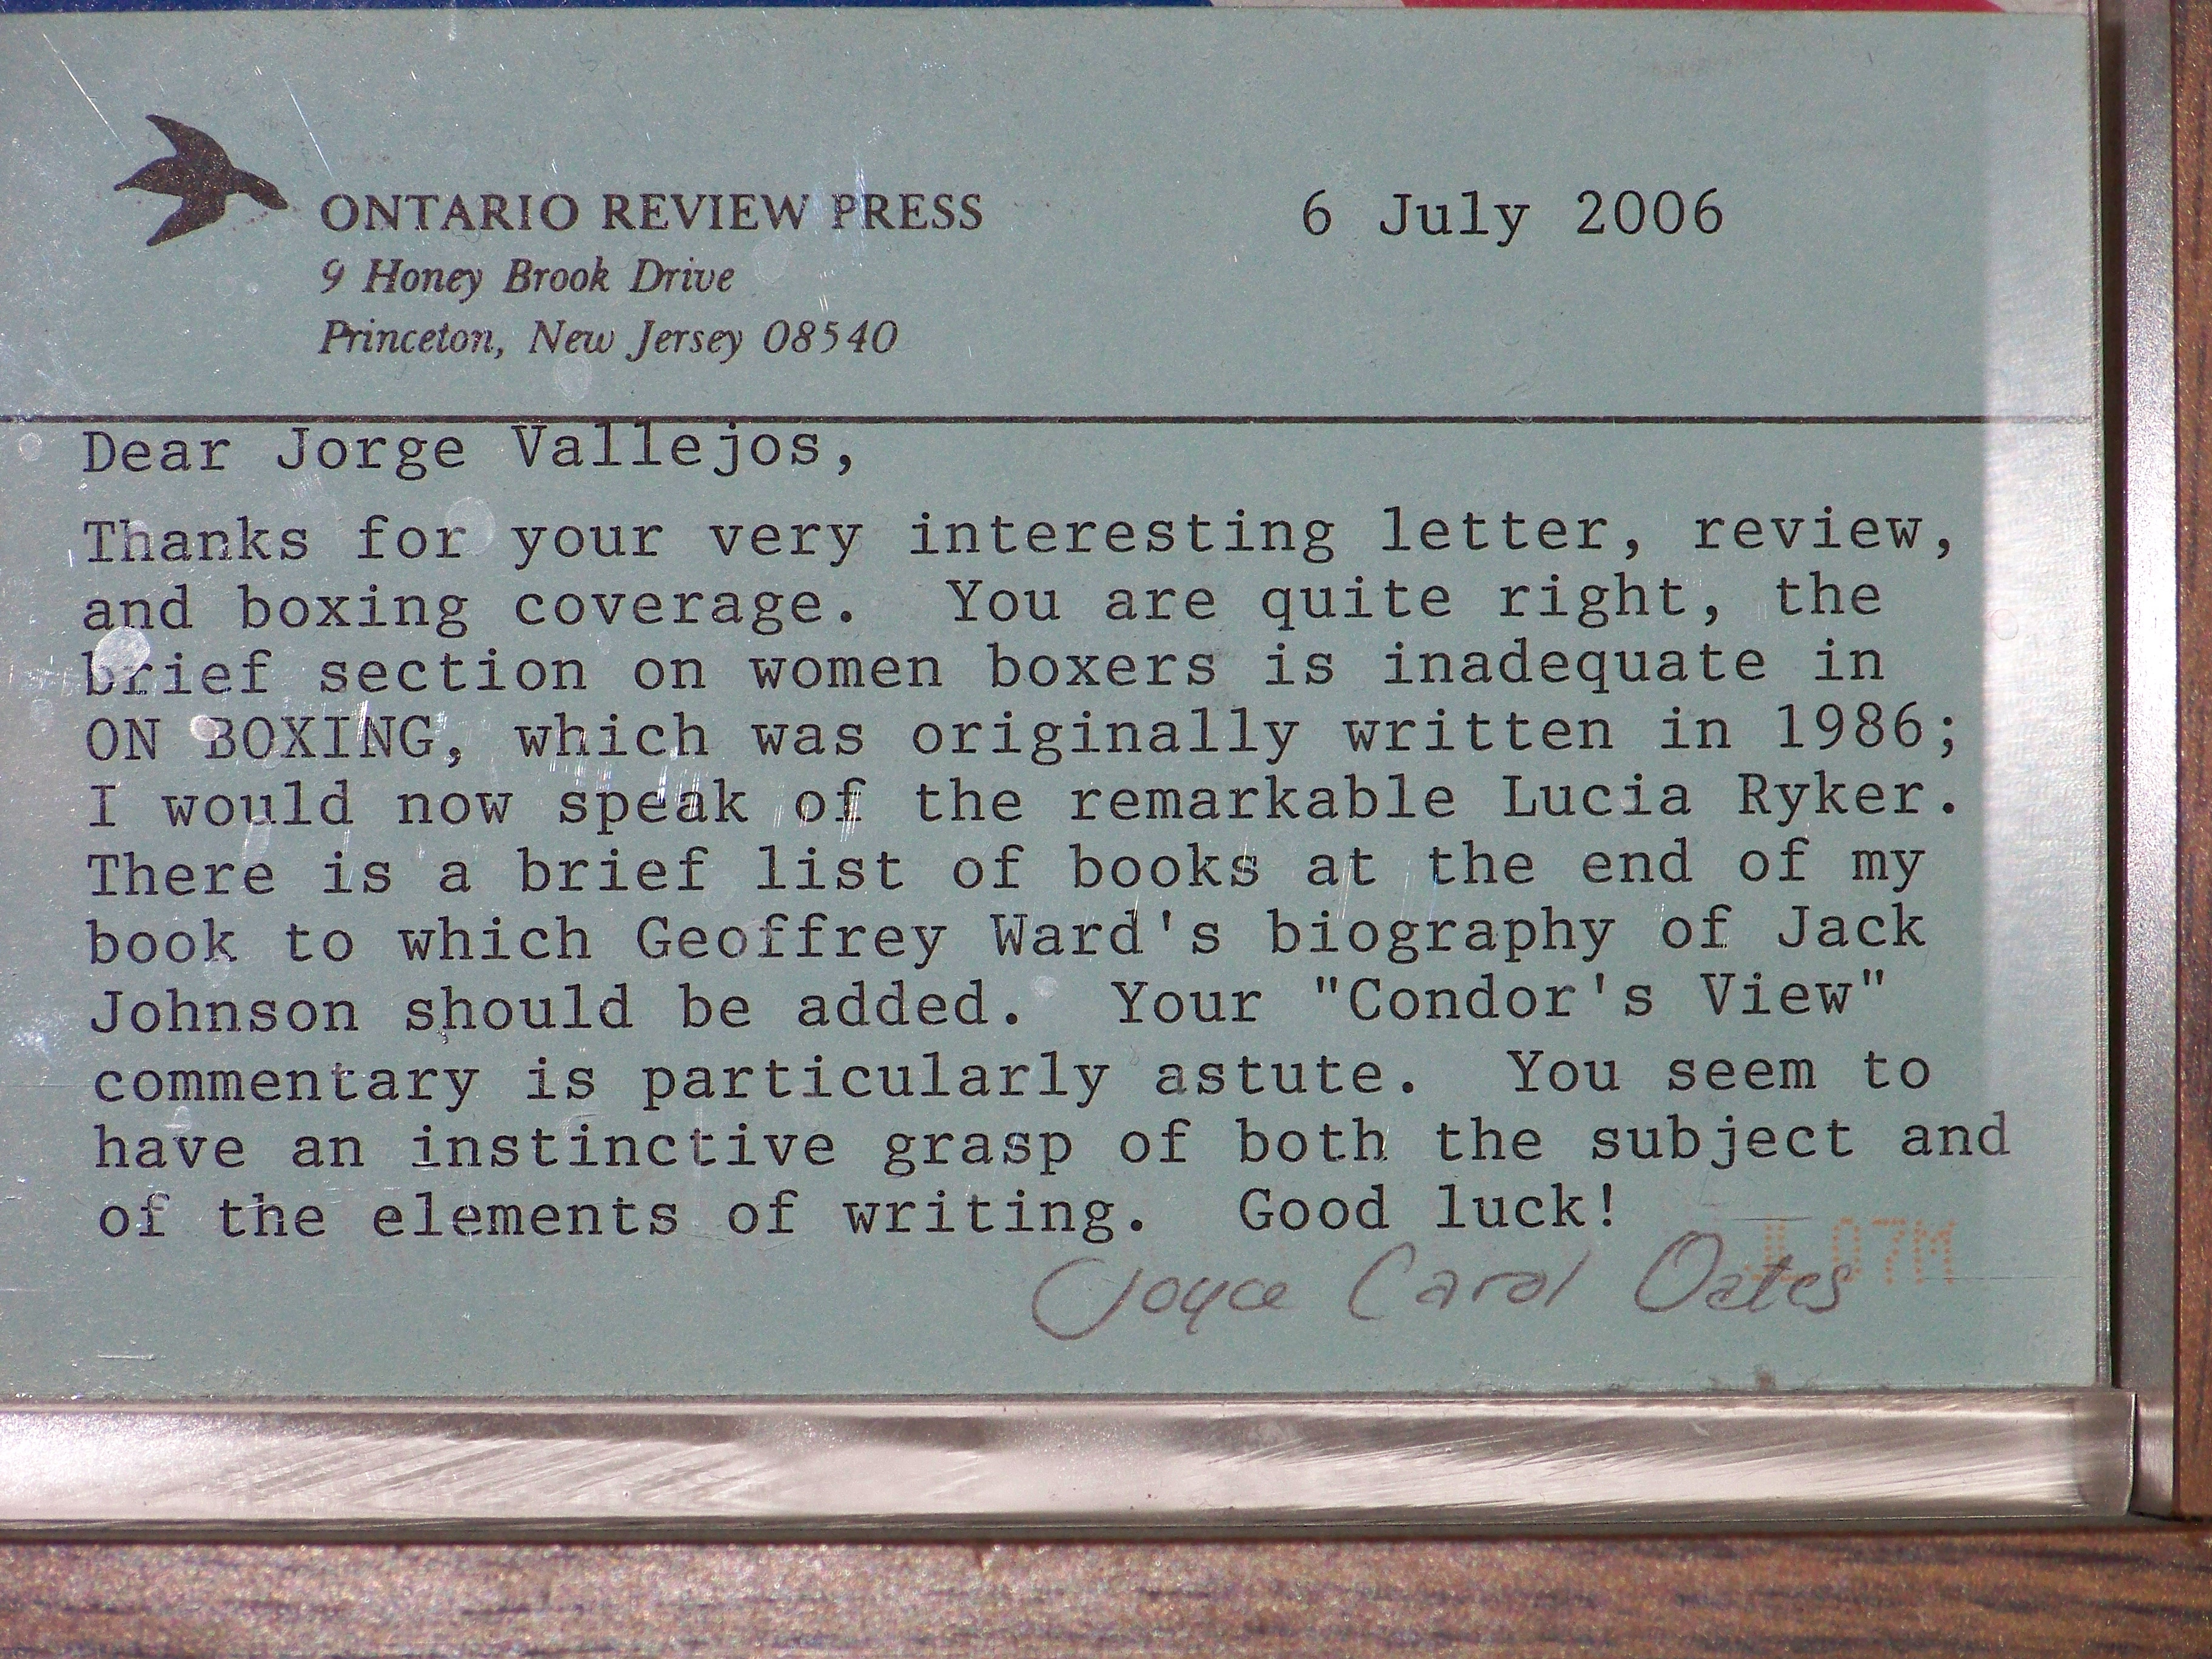 ONTARIO REVIEW PRESS
9 Honey Brook Drive
Princeton, New Jersey 08540
6 July 2006
Dear Jorge Vallejos,
Thanks for your very interesting letter, review,
and boxing coverage.  You are quite right, the
brief section on women boxers is inadequate in
ON BOXING, which was originally written in 1986;
I would now speak of the remarkable Lucia Ryker.
There is a brief list of books at the end of my
book to which Geoffrey Ward's biography of Jack
Johnson should be added.  Your "Condor's View"
commentary is particularly astute.  You seem to
have an instinctive grasp of both the subject and
of the elements of writing.  Good luck!
Joyce Carol Oates